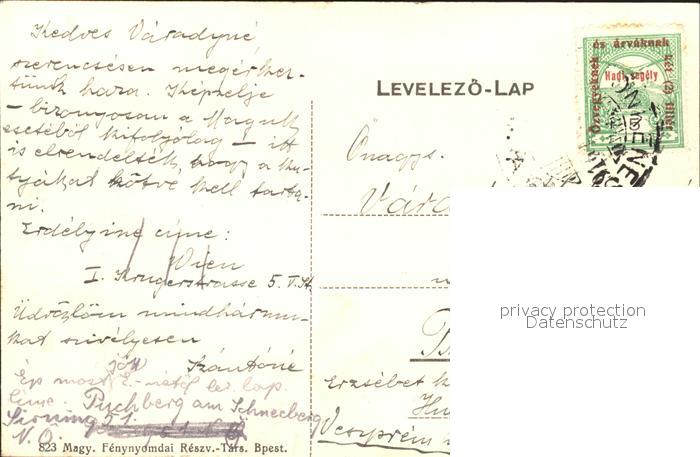 Kedves Váradyné,
szerencsésen megérkez-
tünk haza. Képzelje
– bizonyosan a Maguk
esetéből kifolyólag – itt
is elrendelték, hogy a ku-
tyákat kötve kell tarta-
ni.
Erdélyiné címe:
Wien
I. Krugerstrasse 5. T. St.
Üdvözlöm mindhármu-
kat szívélyesen
Szántóné
Ép most jött E.-nétől lev. lap.
Címe. Puchberg am Schneeberg
Sierning 51.
N. Ö.
823 Magy. Fénynyomdai Részv.-Társ. Bpest.
LEVELEZŐ-LAP
Özvegyeknek és árváknak két (2) fillér
Hadi segély
Önagys.
Várad
Erzsébet k
Hu
Veszprém
privacy protection
Datenschutz